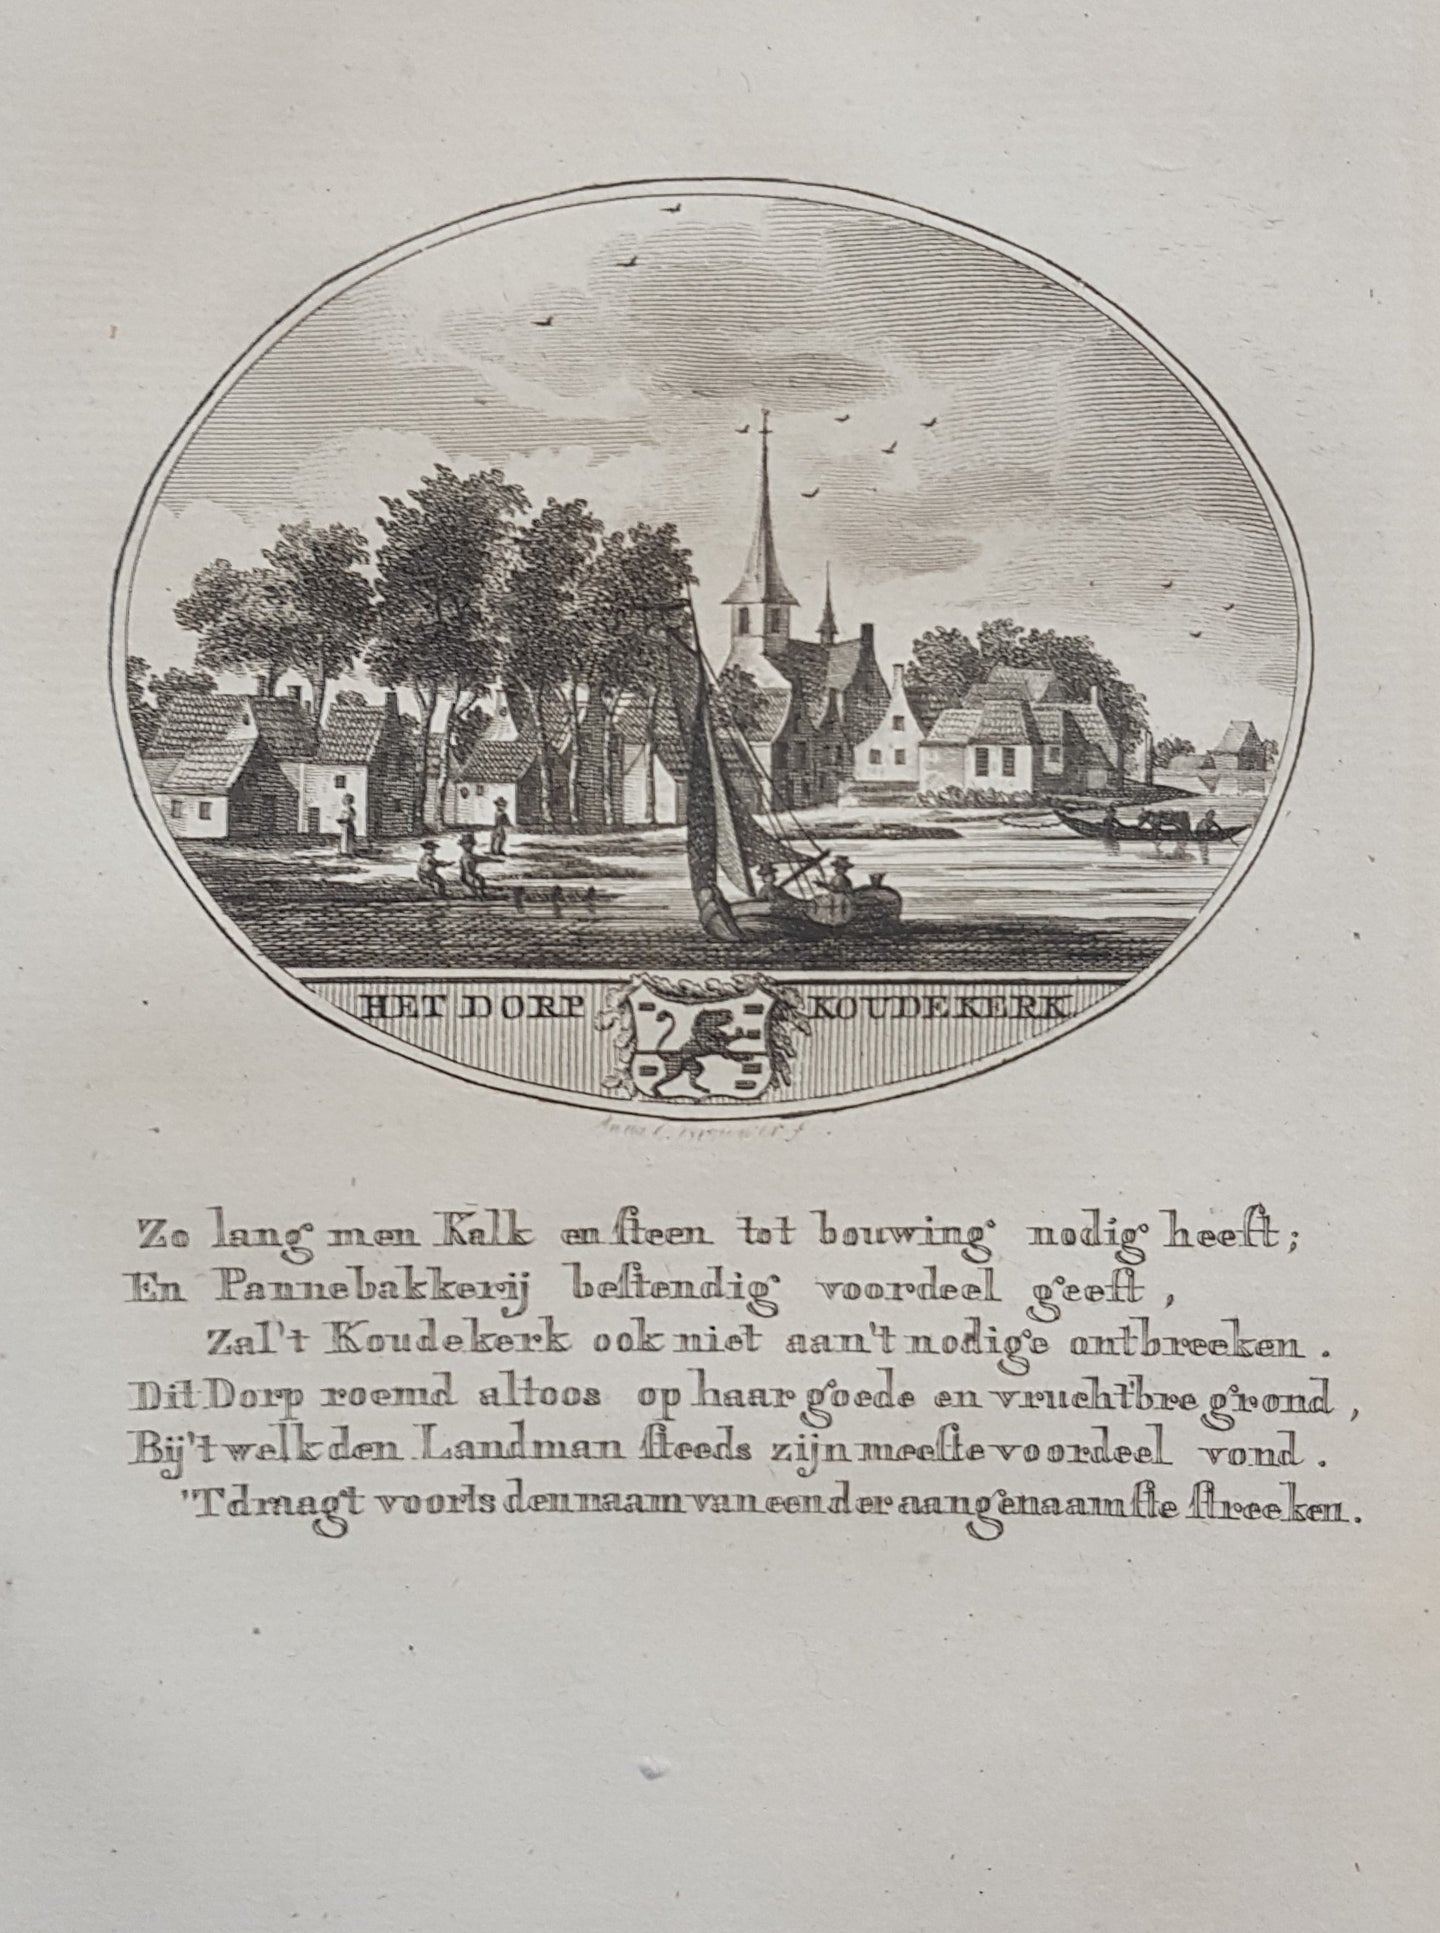 HET DORP KOUDEKERK
Anna C. Brouwer f.
Zo lang men Kalk en steen tot bouwing nodig heeft;
En Pannebakkerij bestendig voordeel geeft,
Zal't Koudekerk ook niet aan't nodige ontbreeken.
Dit Dorp roemd altoos op haar goede en vrucht'bre grond,
Bij't welk den Landman steeds zijn meeste voordeel vond.
'T draagt voorts den naam van een der aangenaamste streeken.